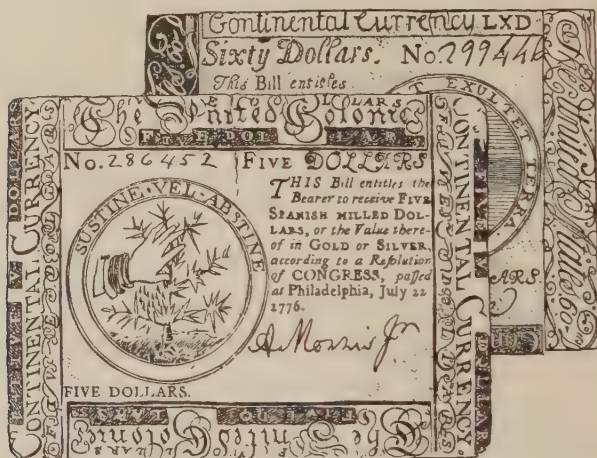 Continental Currency LXD
Sixty Dollars. No. 299446
This Bill entitles
EXULTET TERRA
The United States 60
The United Colonies
FIVE DOLLARS
No. 286452 FIVE DOLLARS
THIS Bill entitles the
Bearer to receive FIVE
SPANISH MILLED DOL-
LARS, or the Value there-
of in GOLD or SILVER,
according to a Resolution
of CONGRESS, passed
at Philadelphia, July 22
1776.
A. Morris Jr
SUSTINE·VEL·ABSTINE
FIVE DOLLARS.
CONTINENTAL CURRENCY
CONTINENTAL CURRENCY
FIVE DOLLARS
The United Colonies